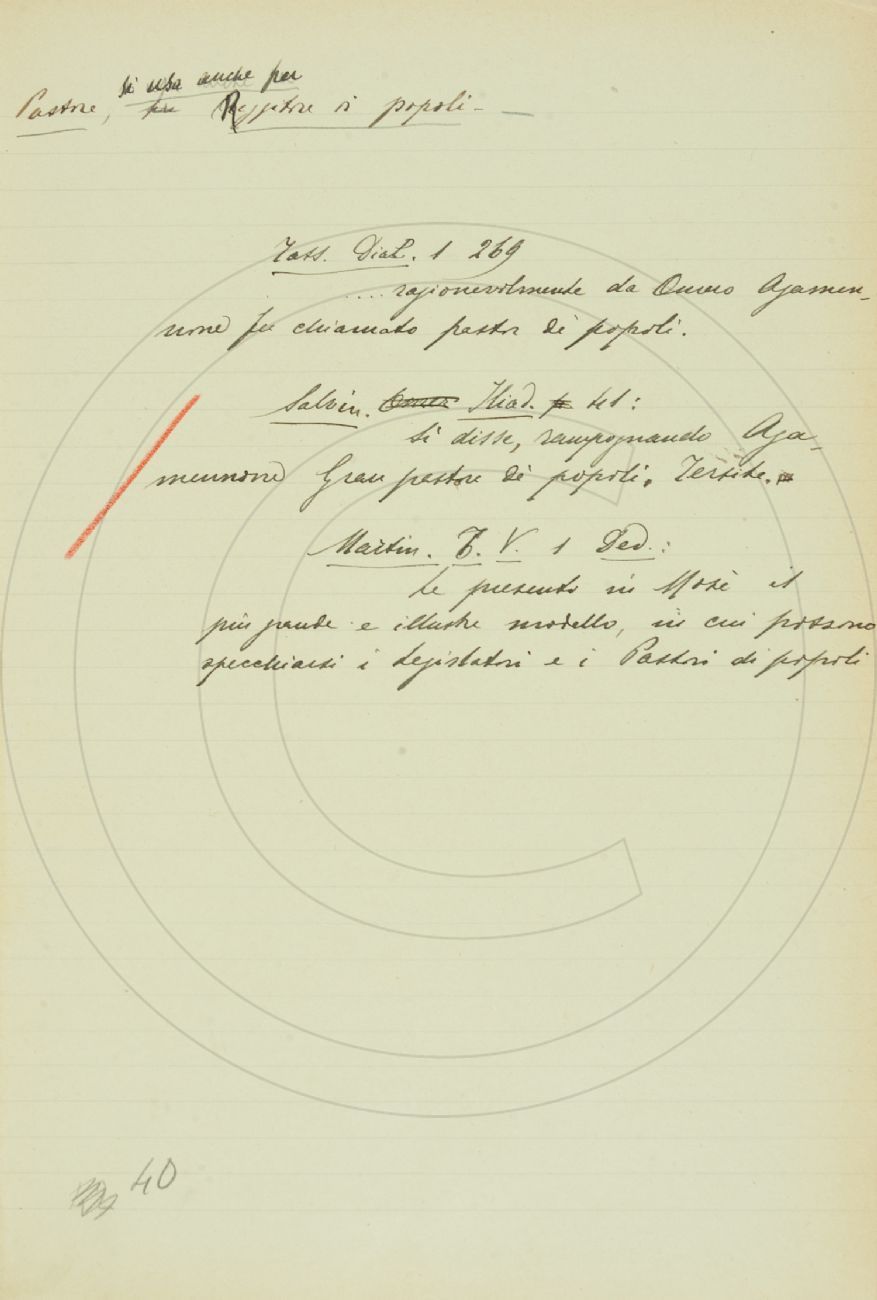 si usa anche per
Pastore, per Reggitore di popoli -
Tass. Dial. 1 269
.... ragionevolmente da Omero Agamen-
none fu chiamato pastor de' popoli.
Salvin. Omer. Iliad. 41:
Sì disse, rampognando Aga-
mennone Gran pastore de' popoli, Tersite.
Martin. T. V. 1 Ded.:
Le presento in Mosè il
più grande e illustre modello, in cui possono
specchiarsi i Legislatori e i Pastori di popoli
40